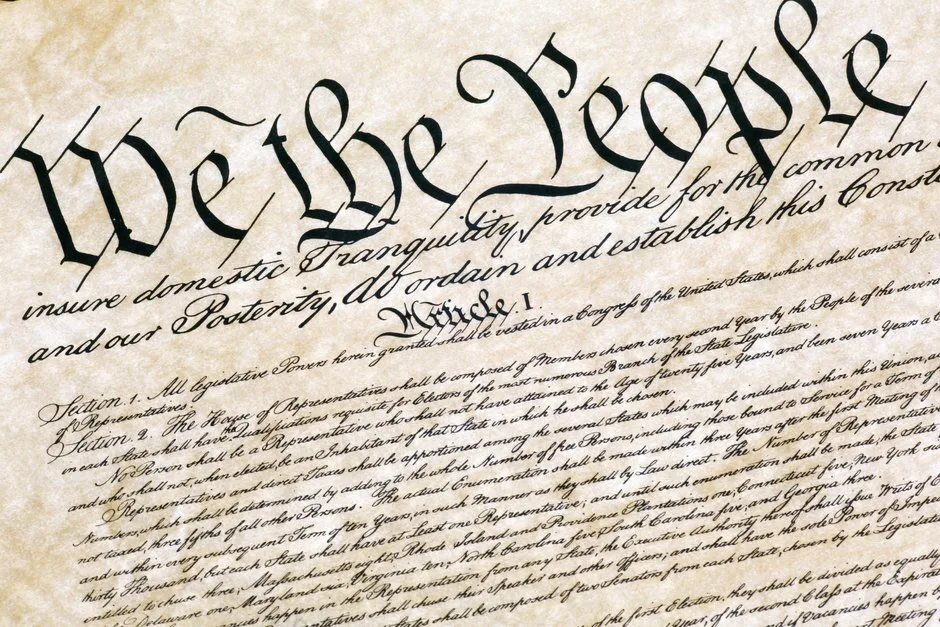 We the People
insure domestic Tranquility, provide for the common
and our Posterity, do ordain and establish this Const
Article I
Section 1. All legislative Powers herein granted shall be vested in a Congress of the United States, which shall consist of a
of Representatives.
Section 2. The House of Representatives shall be composed of Members chosen every second Year by the People of the several
in each State shall have the Qualifications requisite for Electors of the most numerous Branch of the State Legislature.
No Person shall be a Representative who shall not have attained to the Age of twenty five Years, and been seven Years a
and who shall not, when elected, be an Inhabitant of that State in which he shall be chosen.
Representatives and direct Taxes shall be apportioned among the several States which may be included within this Union, ac
Numbers, which shall be determined by adding to the whole Number of free Persons, including those bound to Service for a Term of
not taxed, three fifths of all other Persons. The actual Enumeration shall be made within three Years after the first Meeting of
and within every subsequent Term of ten Years, in such Manner as they shall by Law direct. The Number of Representative
thirty Thousand, but each State shall have at Least one Representative; and until such enumeration shall be made, the State
entitled to chuse three, Massachusetts eight, Rhode Island and Providence Plantations one, Connecticut five, New York six
Delaware one, Maryland six, Virginia ten, North Carolina five, South Carolina five, and Georgia three.
ancies happen in the Representation from any State, the Executive Authority thereof shall issue Writs of
sentatives shall chuse their Speaker and other Officers; and shall have the sole Power of Impe
States shall be composed of two Senators from each State, chosen by the Legislatu
of the first Election, they shall be divided as equally
Year, of the second Class at the Expirat
if Vacancies happen by
Meeting